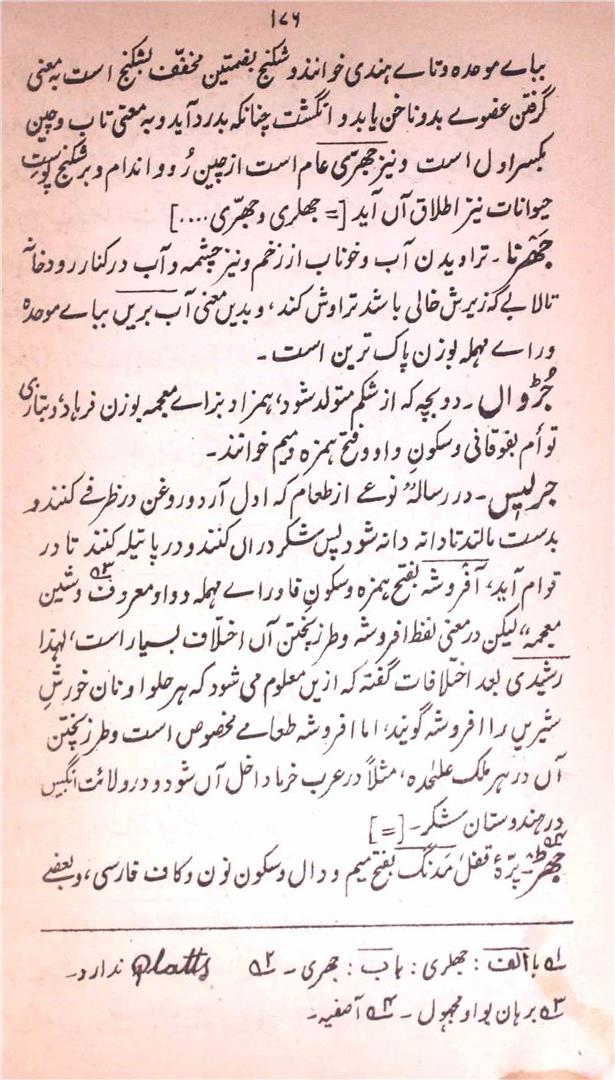 ۱۷۶
ببائے موحدہ وتائے ہندی خوانند و شکنج بفتحتین مخفّف بشکنج است بہ معنی
گرفتن عضوے بدو ناخن یا بدو انگشت چنانکہ بدرد آید و بہ معنی تاب و چین
بکسر اول است و نیز جھرّی عام است از چین رُو و اندام و بر شکنج پوست
حیوانات نیز اطلاق آں آید [= جھلری و جھرّی ....]
جھَرنا - تراویدن آب و خوناب از زخم و نیز چشمہ و آب در کنار رودخانہ
تالابے کہ زیرش خالی باشد تراوش کند، و بدیں معنی آب بریں ببائے موحدہ
و رائے مہملہ بوزن پاک ترین است۔
جُڑواں - دو بچہ کہ از شکم متولد شود، ہمزاد بزائے معجمہ بوزن فرہاد و بتازی
توأم بفوقانی و سکون واو و فتح ہمزہ و میم خوانند۔
جرلپس - در رسالہ "نوعے از طعام کہ اول آرد و روغن در ظرفے کنند و
بدست مالند تا دانہ دانہ شود پس شکر دراں کنند و در پاتیلہ کنند تا در
قوام آید، آفروشہ بفتح ہمزہ و سکون فا و رائے مہملہ و واو معروف ۳؎ و شین
معجمہ" لیکن در معنی لفظ افروشہ و طرز پختن آں اختلاف بسیار است، لہٰذا
رشیدی بعد اختلافات گفتہ کہ ازیں معلوم می شود کہ ہر حلوا و نان خورش
شیریں را افروشہ گویند، اما افروشہ طعامے مخصوص است و طرز پختن
آں در ہر ملک علیٰحدہ، مثلاً در عرب خرما داخل آں شود و در ولائت انگبیں
در ہندوستان شکر۔ [=]
جھڑ ۴؎ - پرّہ قفل، مَدنگ بفتح میم و دال و سکون نون و کاف فارسی، و بعضے
۱؎ با الف : جھلری : ہا ب : جھری - ۲؎ Platts ندارد۔
۳؎ برہان بواو مجہول - ۴؎ آصفیہ۔